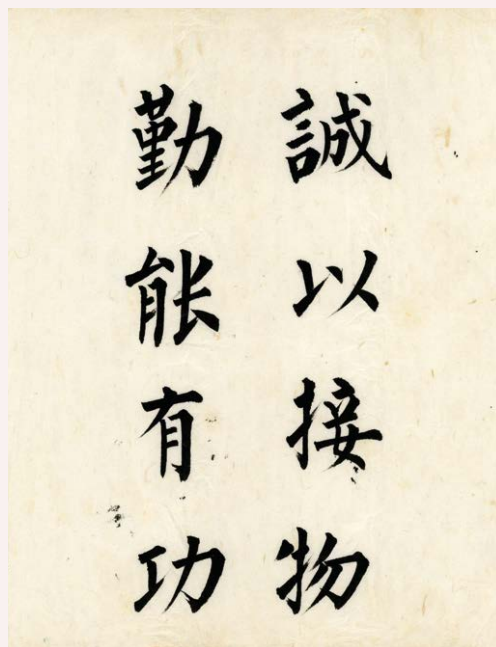 誠以接物
勤能有功